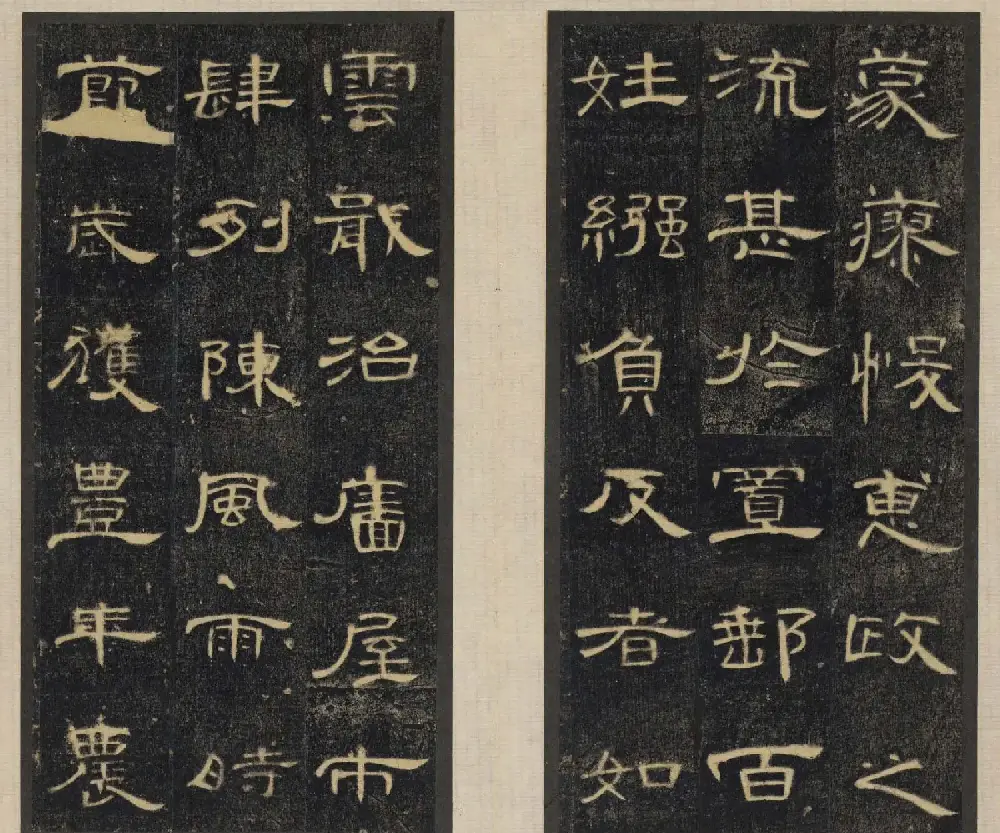 蒙瘳悛惠政之
流甚於置郵百
姓繈負反者如
雲戢治廧屋市
肆列陳風雨時
節歲獲豊年農